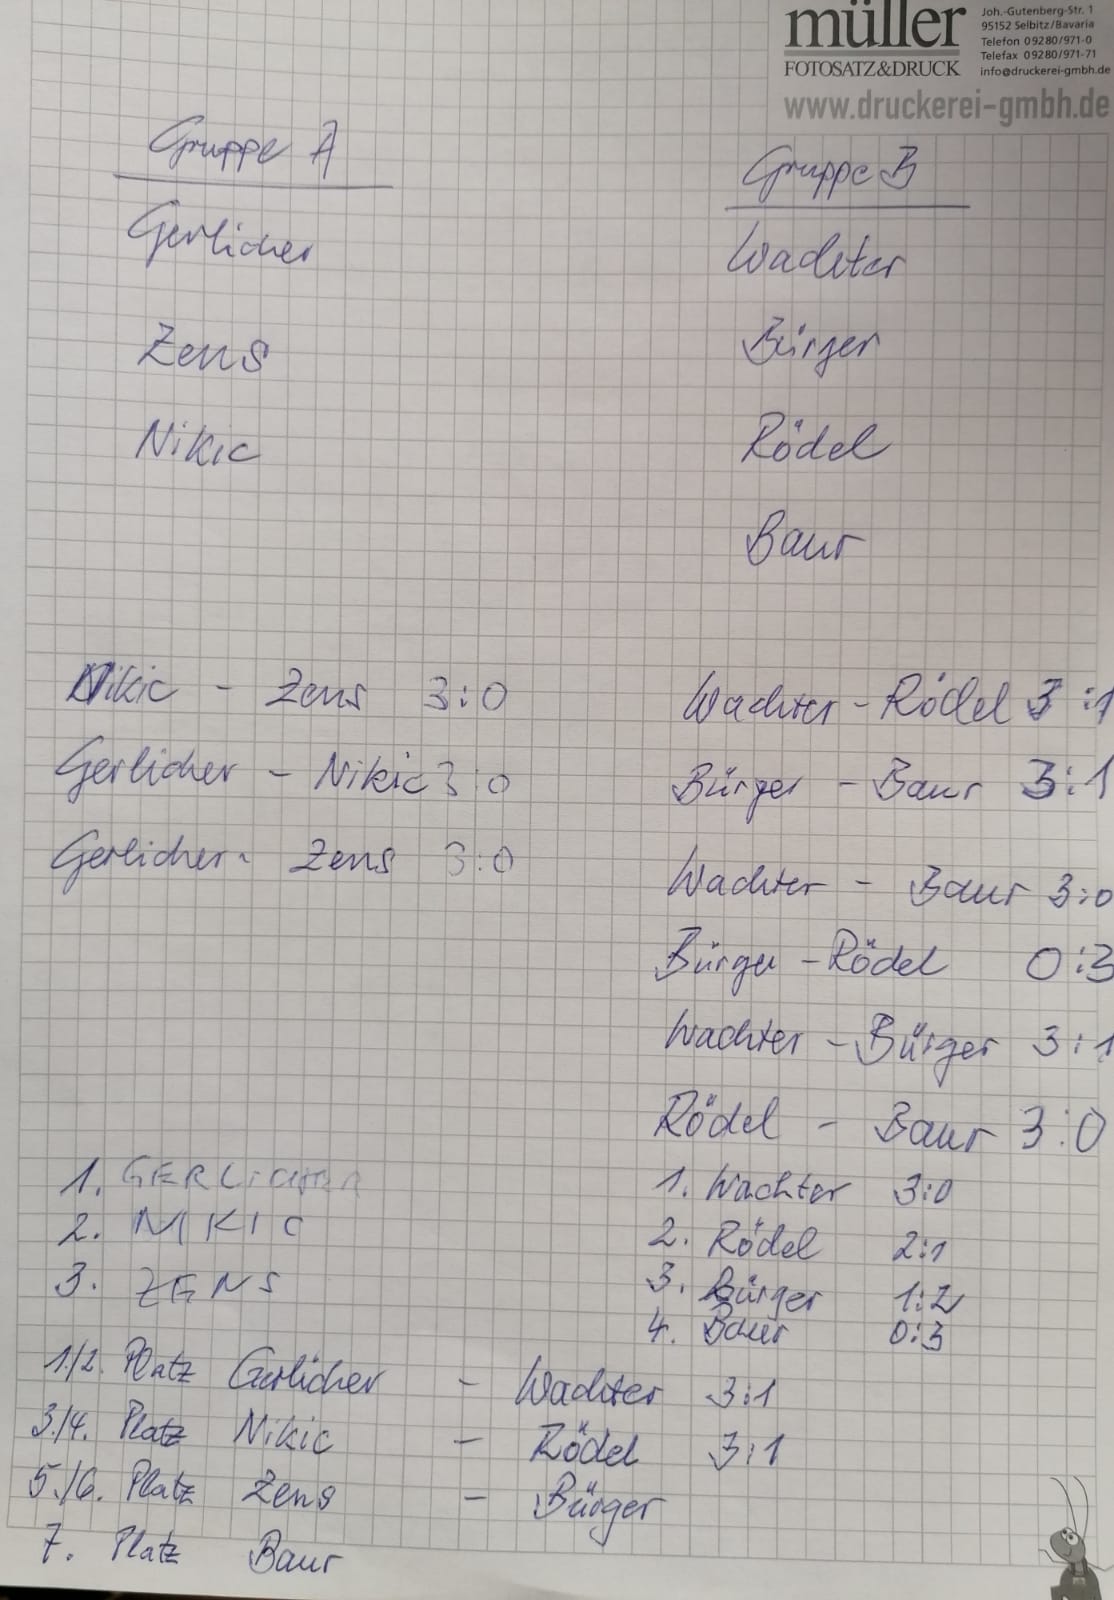 müller
FOTOSATZ&DRUCK
Joh.-Gutenberg-Str. 1
95152 Selbitz/Bavaria
Telefon 09280/971-0
Telefax 09280/971-71
info@druckerei-gmbh.de
www.druckerei-gmbh.de
Gruppe A
Gerlicher
Zens
Nikic
Gruppe B
Wachter
Bürger
Rödel
Baur
Nikic - Zens 3:0
Gerlicher - Nikic 3:0
Gerlicher - Zens 3:0
Wachter - Rödel 3:1
Bürger - Baur 3:1
Wachter - Baur 3:0
Bürger - Rödel 0:3
Wachter - Bürger 3:1
Rödel - Baur 3:0
1. GERLICHER
2. NIKIC
3. ZENS
1. Wachter 3:0
2. Rödel 2:1
3. Bürger 1:2
4. Baur 0:3
1./2. Platz Gerlicher - Wachter 3:1
3./4. Platz Nikic - Rödel 3:1
5./6. Platz Zens - Bürger
7. Platz Baur